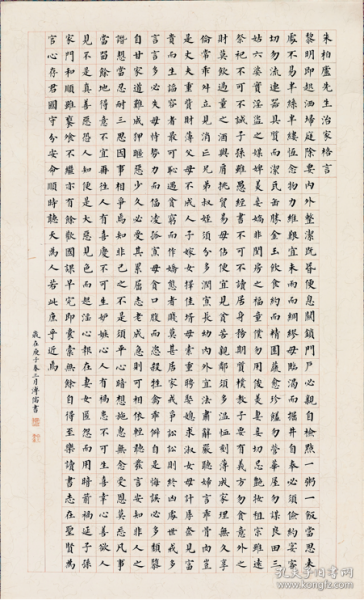 朱柏廬先生治家格言
黎明即起洒埽庭除要內外整潔既昏便息關鎖門戶必親自檢點一粥一飯當思來
處不易半絲半縷恆念物力維艱宜未雨而綢繆毋臨渴而掘井自奉必須儉約宴客
切勿流連器具質而潔瓦缶勝金玉飲食約而精園蔬愈珍饈勿營華屋勿謀良田三
姑六婆實淫盜之媒婢美妾嬌非閨房之福童僕勿用俊美妻妾切忌艷妝祖宗雖遠
祭祀不可不誠子孫雖愚經書不可不讀居身務期質樸教子要有義方勿貪意外之
財莫飲過量之酒與肩挑貿易毋佔便宜見貧苦親鄰須多溫恤刻薄成家理無久享
倫常乖舛立見消亡兄弟叔姪須分多潤寡長幼內外宜法肅辭嚴聽婦言乖骨肉豈
是丈夫重貲財薄父母不成人子嫁女擇佳壻毋索重聘娶媳求淑女毋計厚奩見富
貴而生諂容者最可恥遇貧窮而作驕態者賤莫甚居家戒爭訟訟則終凶處世戒多
言言多必失毋恃勢力而凌孤寡毋貪口腹而恣殺牲禽乖僻自是悔誤必多頹惰
自甘家道難成狎暱惡少久必受其累屈志老成急則可相依輕聽發言安知非人之
譖愬當忍耐三思因事相爭焉知非己之不是須平心暗想施惠無念受恩莫忘凡事
當留餘地得意不宜再往人有喜慶不可生妒嫉心人有禍患不可生喜幸心善欲人
見不是真善惡恐人知便是大惡見色而起淫心報在妻女匿怨而用暗箭禍延子孫
家門和順雖饔飧不繼亦有餘歡國課早完即囊橐無餘自得至樂讀書志在聖賢為
官心存君國守分安命順時聽天為人若此庶乎近焉
歲在庚子春三月溥儒書
孔夫子旧书网